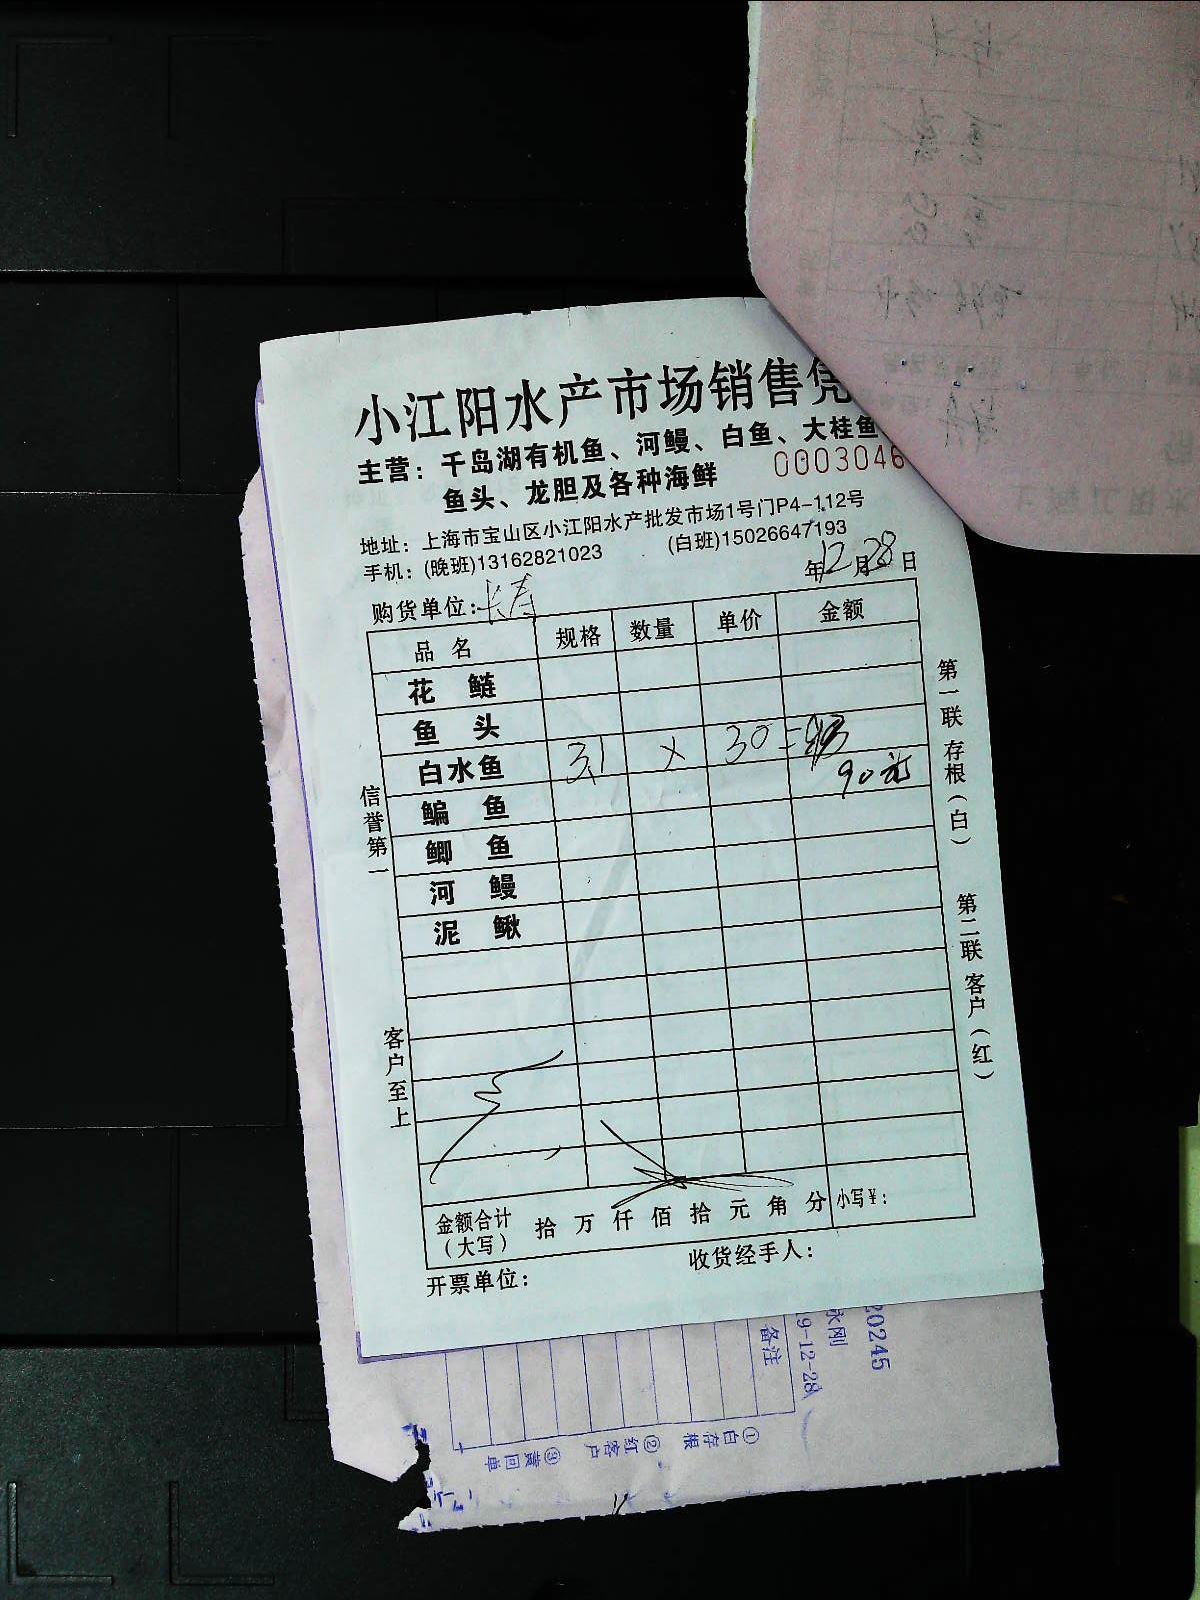 小江阳水产市场销售凭
主营：千岛湖有机鱼、河鳗、白鱼、大桂鱼
鱼头、龙胆及各种海鲜
0003046
地址：上海市宝山区小江阳水产批发市场1号门P4-112号
手机：(晚班)13162821023 (白班)15026647193
年12月28日
购货单位：长寿
品 名 规格 数量 单价 金额
花 鲢
鱼 头
白水鱼 3.1 × 30=
90元
鳊 鱼
鲫 鱼
河 鳗
泥 鳅
金额合计（大写） 拾 万 仟 佰 拾 元 角 分 小写¥：
开票单位： 收货经手人：
信誉第一
客户至上
第一联 存根（白）
第二联 客户（红）
20245
永刚
9-12-28
备注
①白存根 ②红客户 ③黄回单